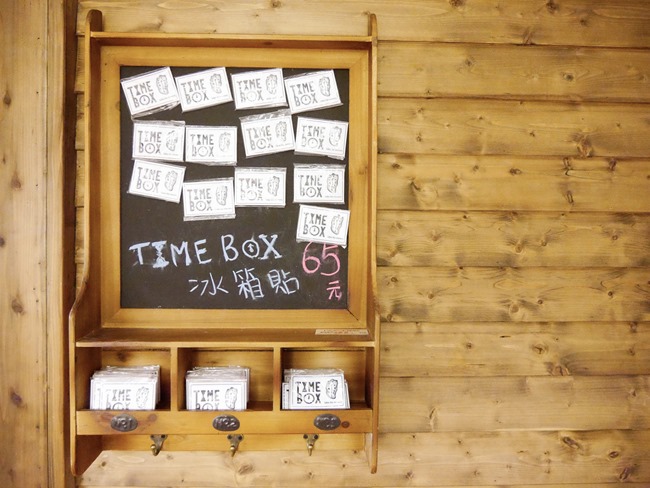 TIME
BOX
TIME
BOX
TIME
BOX
TIME
BOX
TIME
BOX
TIME
BOX
TIME
BOX
TIME
BOX
TIME
BOX
TIME
BOX
TIME
BOX
TIME
BOX
TIME
BOX
TIME BOX
冰箱貼 65
元
TIME
BOX
TIME
BOX
TIME
BOX